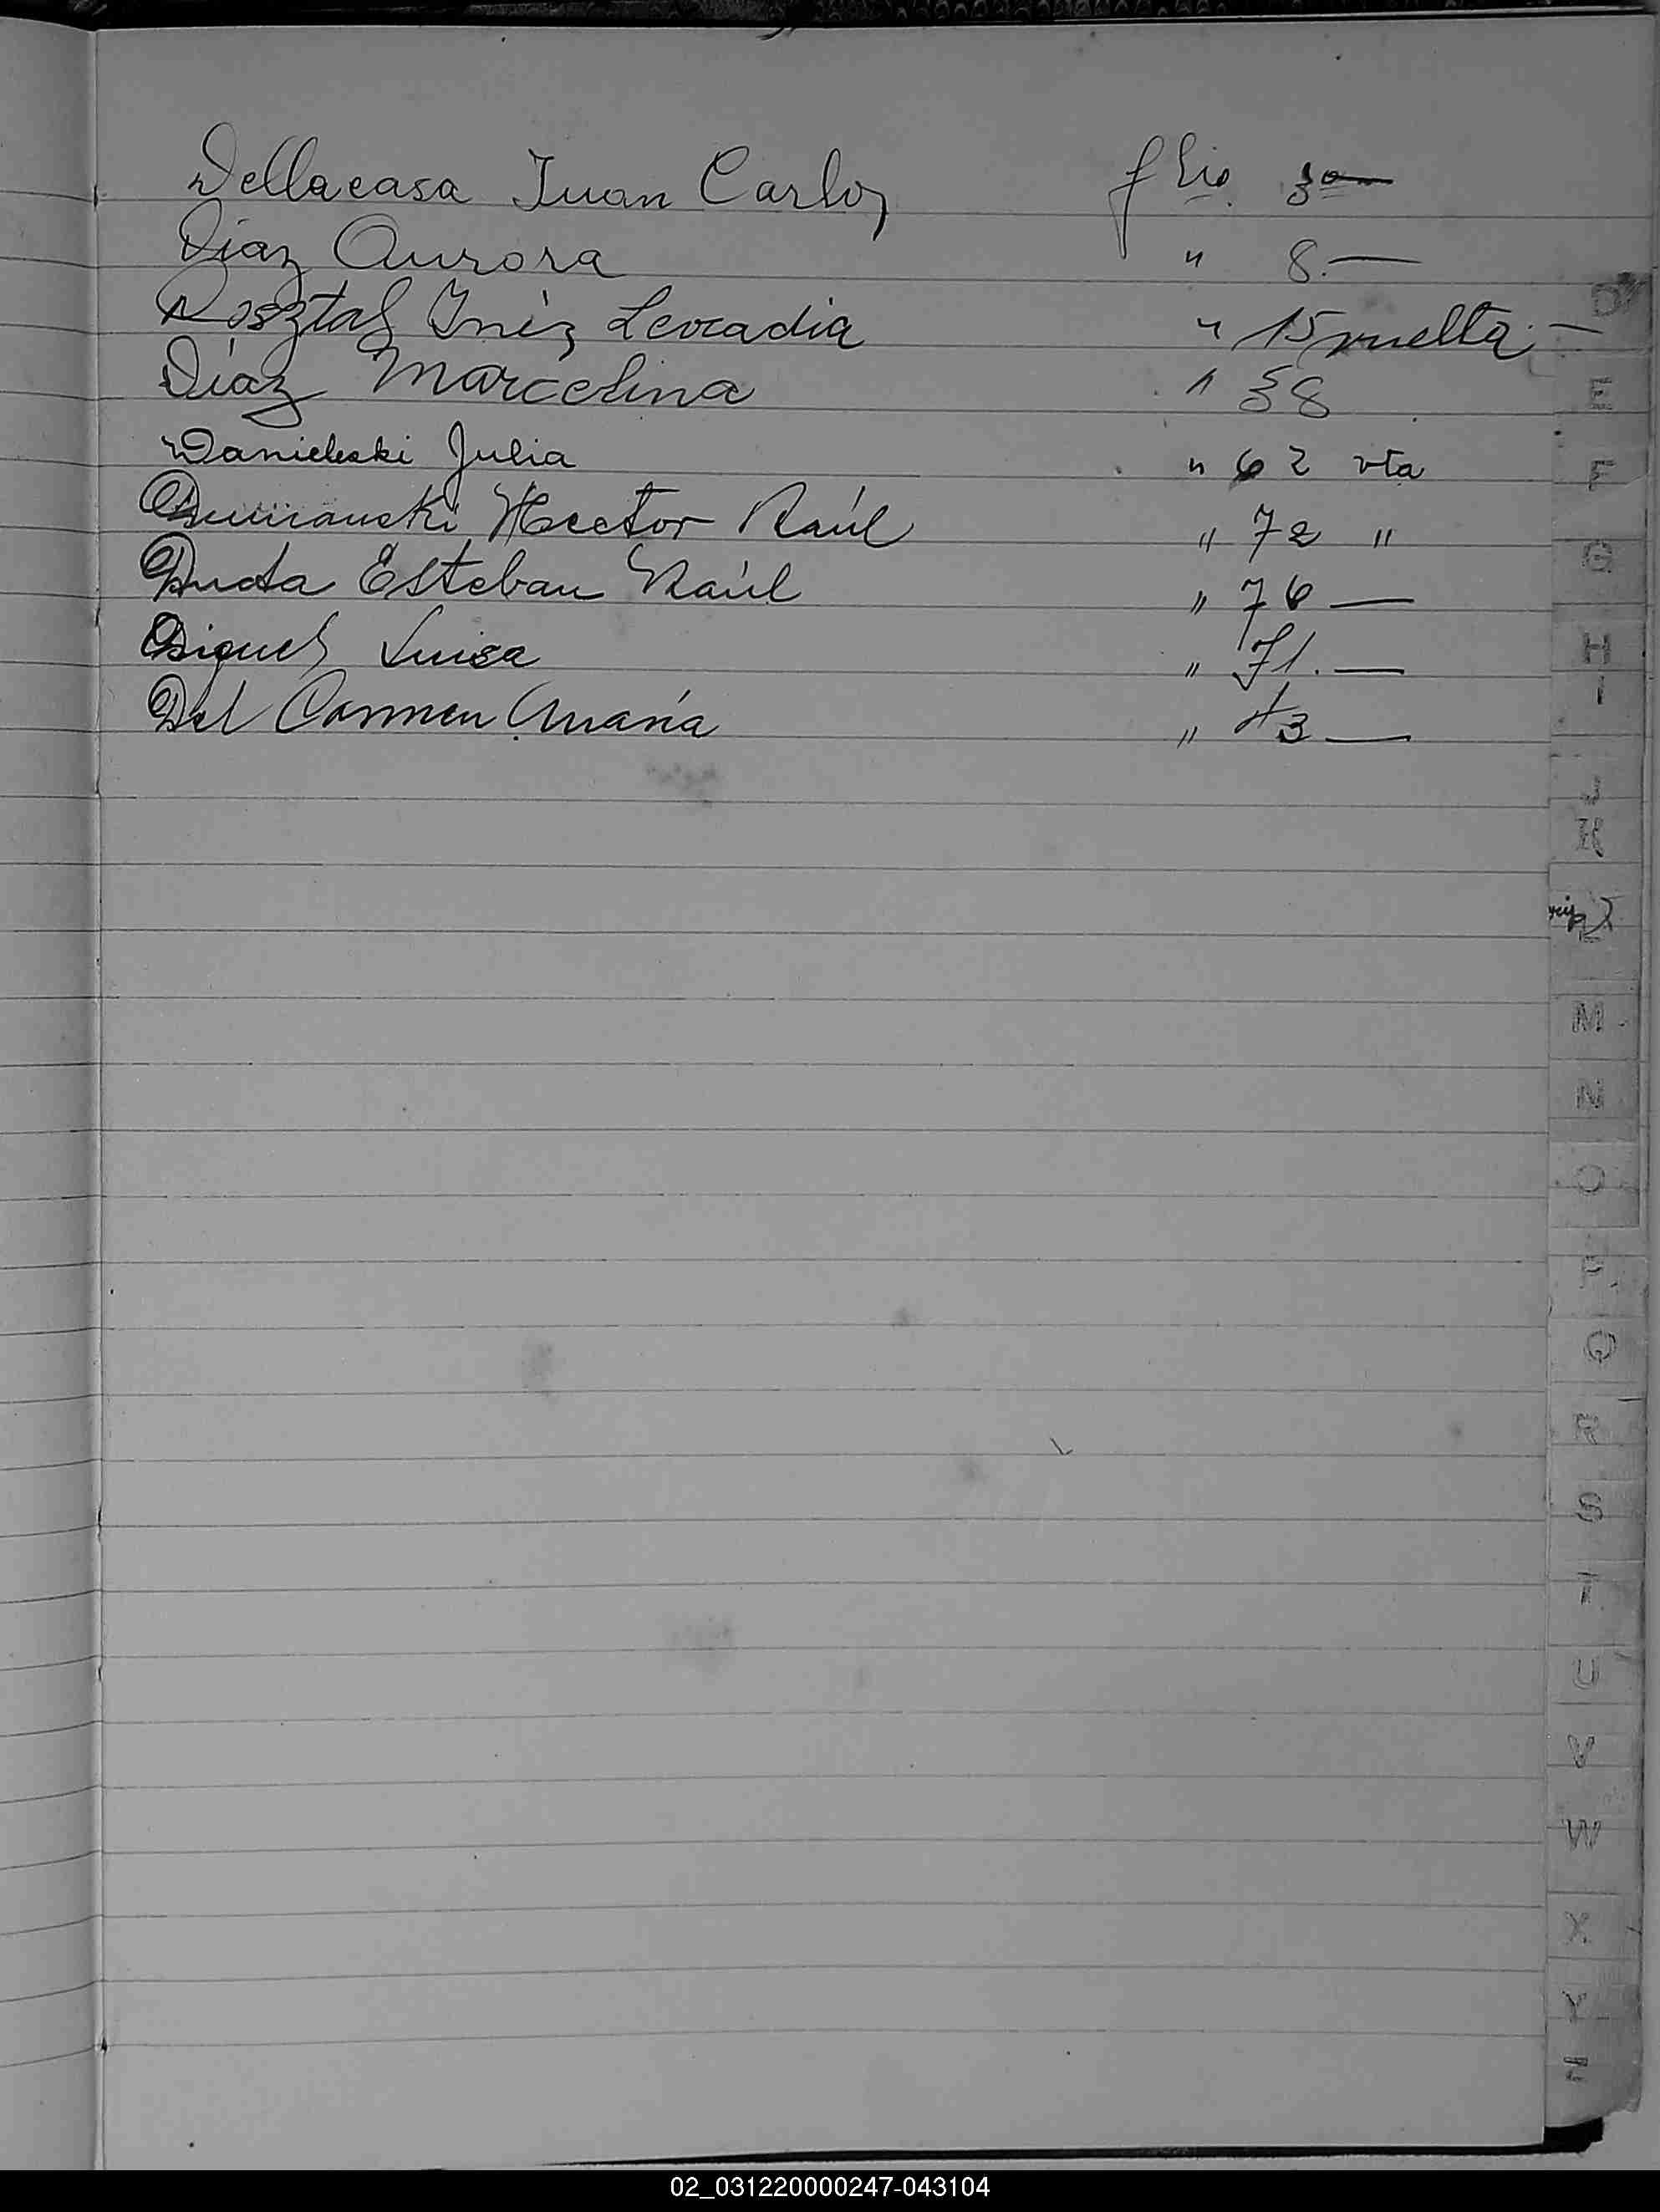 Dellacasa Juan Carlos flio. 3 —
Diaz Aurora " 8. —
Dosztal Inés Leocadia " 15 vuelta. —
Díaz Marcelina " 58
Danieleski Julia " 62 vta
Hector Raúl " 72 "
Duda Esteban Raúl " 76 —
Miguel Luisa " 71. —
Del Carmen María " 43 —
D
E
F
G
H
I
J
K
L
M
N
O
P
Q
R
S
T
U
V
W
X
Y
Z
02_031220000247-043104